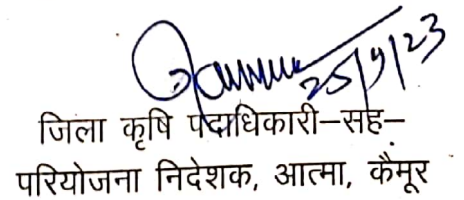 25/9/23
जिला कृषि पदाधिकारी–सह–
परियोजना निदेशक, आत्मा, कैमूर